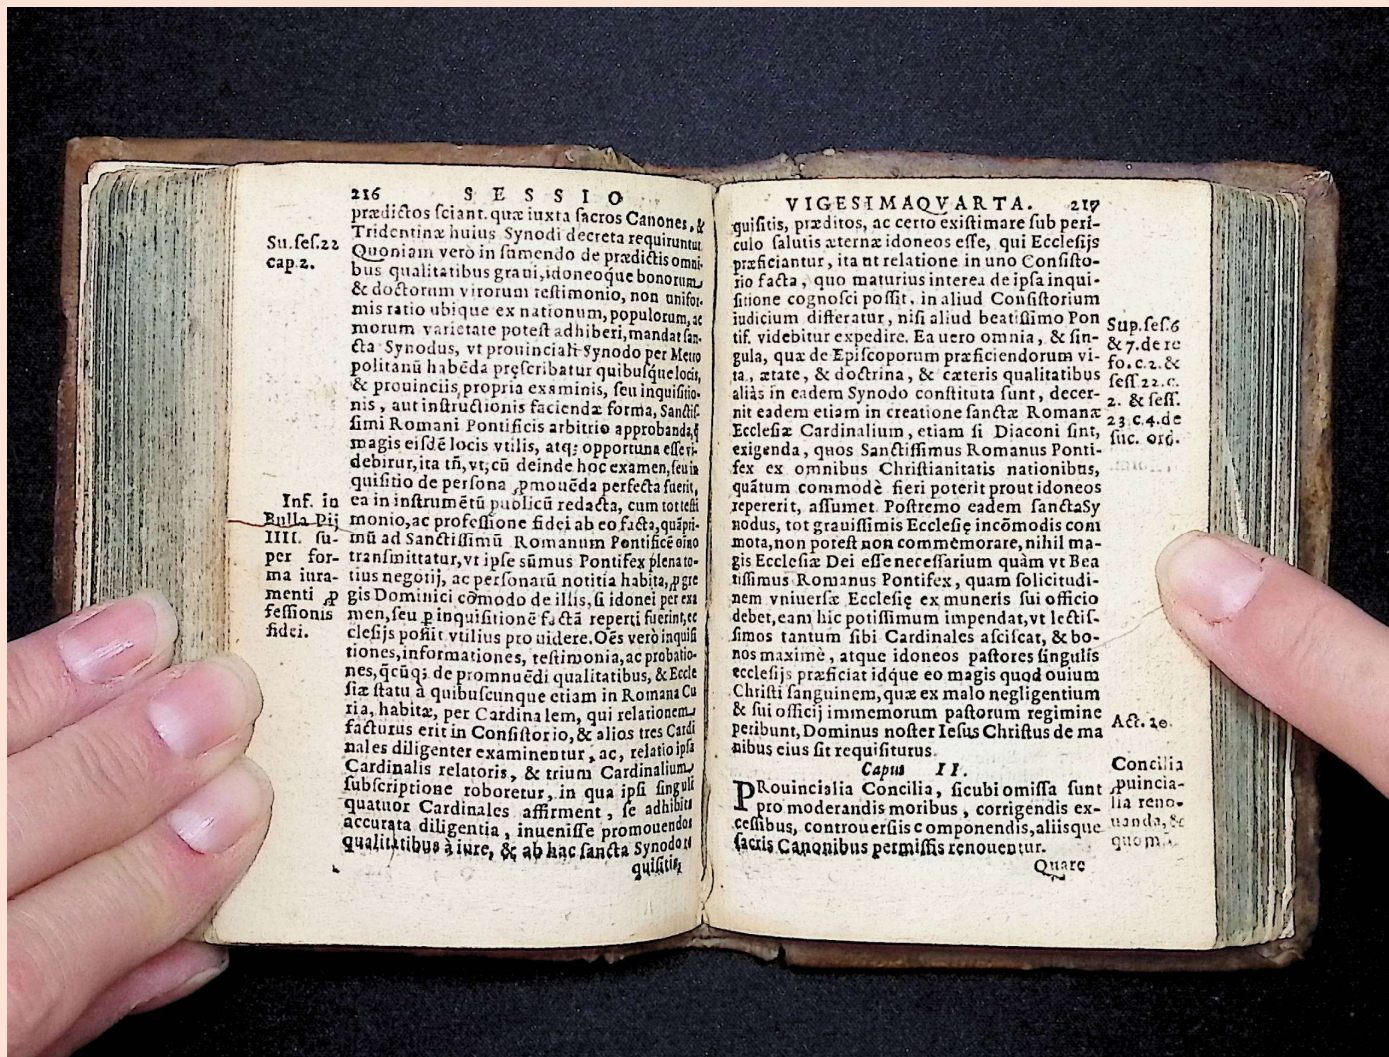 216 SESSIO
prædictos ſciant. quæ iuxta ſacros Canones, &
Tridentinæ huius Synodi decreta requiruntur
Quoniam verò in ſumendo de prædictis omni-
bus qualitatibus graui, idoneoque bonorum
& doctorum virorum teſtimonio, non unifor-
mis ratio ubique ex nationum, populorum, ac
morum varietate poteſt adhiberi, mandat ſan-
cta Synodus, vt prouinciali Synodo per Metro
politanū habēda pręſcribatur quibuſque locis,
& prouinciis, propria examinis, ſeu inquiſitio-
nis, aut inſtructionis faciendæ forma, Sanctiſ-
ſimi Romani Pontificis arbitrio approbanda, q̃
magis eiſdē locis vtilis, atq; opportuna eſſe vi-
debitur, ita tñ, vt; cū deinde hoc examen, ſeu in
quiſitio de perſona ꝓmouēda perfecta fuerit,
ea in inſtrumētū publicū redacta, cum toto teſti
monio, ac profeſſione fidei ab eo facta, quāpri-
mū ad Sanctiſſimū Romanum Pontificē oīno
tranſmittatur, vt ipſe sūmus Pontifex plena to-
tius negotij, ac perſonarū notitia habita, ꝓ gre
gis Dominici cōmodo de illis, ſi idonei per exa
men, ſeu ꝑ inquiſitionē factā reperti fuerint, ec
cleſijs poſſit vtilius prouidere. Oēs verò inquiſi
tiones, informationes, teſtimonia, ac probatio-
nes, q̄cūq; de promnuēdi qualitatibus, & Eccle
ſiæ ſtatu à quibuſcunque etiam in Romana Cu
ria, habitæ, per Cardinalem, qui relationem
facturus erit in Conſiſtorio, & alios tres Cardi
nales diligenter examinentur, ac, relatio ipſa
Cardinalis relatoris, & trium Cardinalium
ſubſcriptione roboretur, in qua ipſi ſinguli
quatuor Cardinales affirment, ſe adhibita
accurata diligentia, inueniſſe promouendos
qualitatibus à iure, & ab hac ſancta Synodo re
quiſitis,
Su. ſeſ. 22
cap. 2.
Inf. in
Bulla Pij
IIII. ſu-
per for-
ma iura-
menti ꝓ
feſſionis
fidei.
VIGESIMAQVARTA. 217
quiſitis, præditos, ac certo exiſtimare ſub peri-
culo ſalutis æternæ idoneos eſſe, qui Eccleſijs
præficiantur, ita nt relatione in uno Conſiſto-
rio facta, quo maturius interea de ipſa inqui-
ſitione cognoſci poſſit, in aliud Conſiſtorium
iudicium differatur, niſi aliud beatiſſimo Pon
tif. videbitur expedire. Ea uero omnia, & ſin-
gula, quæ de Epiſcoporum præficiendorum vi-
ta, ætate, & doctrina, & cæteris qualitatibus
aliàs in eadem Synodo conſtituta ſunt, decer-
nit eadem etiam in creatione ſanctæ Romanæ
Eccleſiæ Cardinalium, etiam ſi Diaconi ſint,
exigenda, quos Sanctiſſimus Romanus Ponti-
fex ex omnibus Chriſtianitatis nationibus,
quātum commodè fieri poterit prout idoneos
repererit, aſſumet. Poſtremo eadem ſanctaSy
nodus, tot grauiſſimis Eccleſię incōmodis com
mota, non poteſt non commemorare, nihil ma-
gis Eccleſiæ Dei eſſe neceſſarium quàm vt Bea
tiſſimus Romanus Pontifex, quam ſolicitudi-
nem vniuerſæ Eccleſię ex muneris ſui officio
debet, eam hic potiſſimum impendat, vt lectiſ-
ſimos tantum ſibi Cardinales aſciſcat, & bo-
nos maximè, atque idoneos paſtores ſingulis
eccleſijs præficiat idque eo magis quod ouium
Chriſti ſanguinem, quæ ex malo negligentium
& ſui officij immemorum paſtorum regimine
peribunt, Dominus noſter Ieſus Chriſtus de ma
nibus eius ſit requiſiturus.
Caput II.
PRouincialia Concilia, ſicubi omiſſa ſunt
pro moderandis moribus, corrigendis ex-
ceſſibus, controuerſiis componendis, aliisque
ſacris Canonibus permiſſis renouentur.
Quare
Sup. ſeſ. 6
& 7. de re
fo. c. 2. &
ſeſſ. 22. c.
2. & ſeſſ.
23 c. 4. de
ſuc. ord.
Act. 20.
Concilia
ꝓuincia-
lia reno-
uanda, &
quom